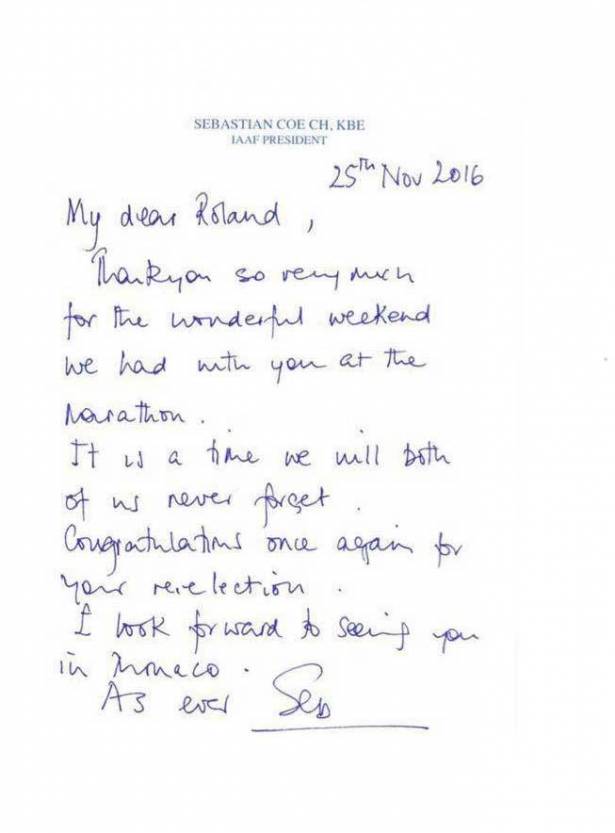 SEBASTIAN COE CH, KBE
IAAF PRESIDENT
25th Nov 2016
My dear Roland,
Thankyou so very much
for the wonderful weekend
we had with you at the
Marathon.
It is a time we will both
of us never forget.
Congratulations once again for
your re-election.
I look forward to seeing you
in Monaco.
As ever Seb